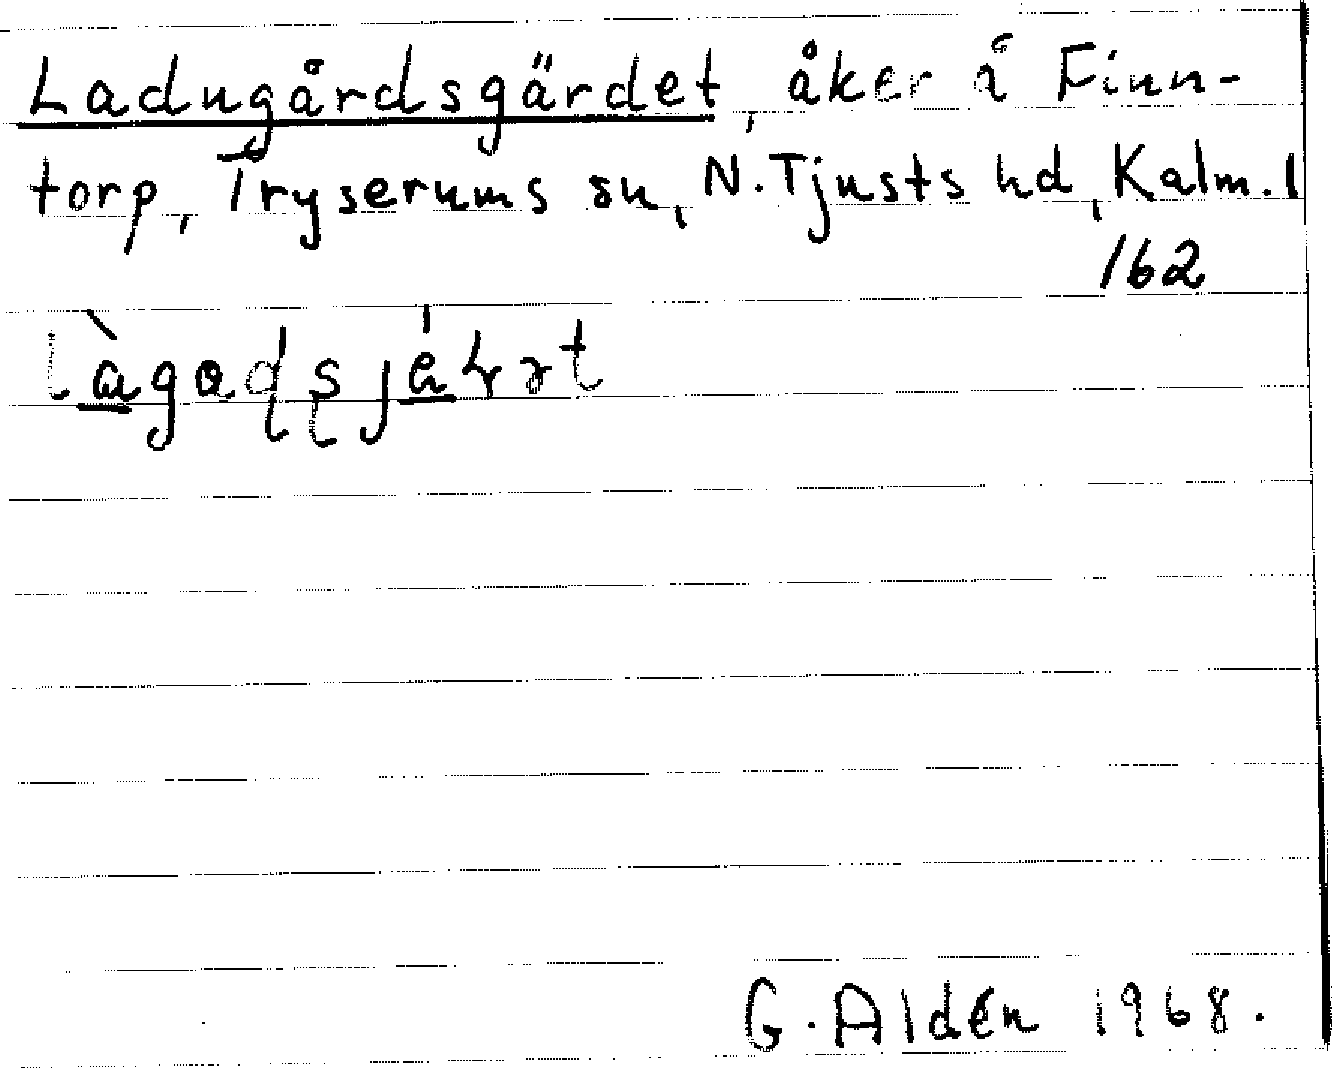 Ladugårdsgärdet, åker i Finn-
torp, Tryserums sn, N. Tjusts hd, Kalm. l
162
G. Aldén 1968.